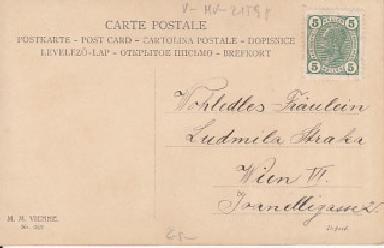 V- MV-2159
CARTE POSTALE
POSTKARTE - POST CARD - CARTOLINA POSTALE - DOPISNICE
LEVELEZŐ-LAP - ОТКРЫТОЕ ПИСЬМО - BREFKORT
5 5
5 5
Wohledles Fräulein
Ludmila Straka
Wien VI.
M. M. VIENNE.